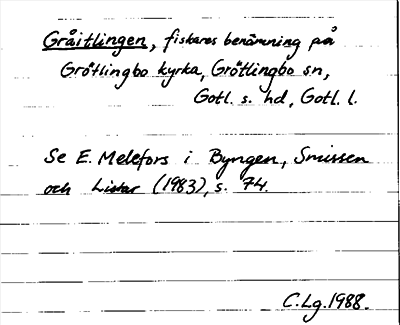 Gråitlingen, fiskares benämning på
Grötlingbo kyrka, Grötlingbo sn,
Gotl. s. hd, Gotl. l.
Se E. Melefors i Byngen, Smissen
och Listar (1983), s. 74.
C.Lg.1988.